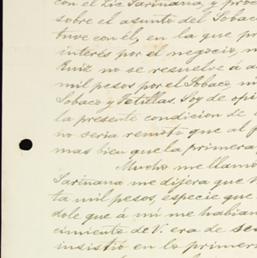 con el Lic Fariñana, y proc
sobre el asunto del Sobac
tuve con él, en la que pr
interés por el negocio, m
Ruiz no se resuelve á a
mil pesos por el Sobaco, ni
Sobaco y Petillas. Soy de opi
la presente condicion de
no seria remoto que al p
mas bien que la primera,
Mucho me llamó
Fariñana me dijera que
ta mil pesos, especie que
dole que á mi me habian
cimiento de V. era de se
insistió en lo primer